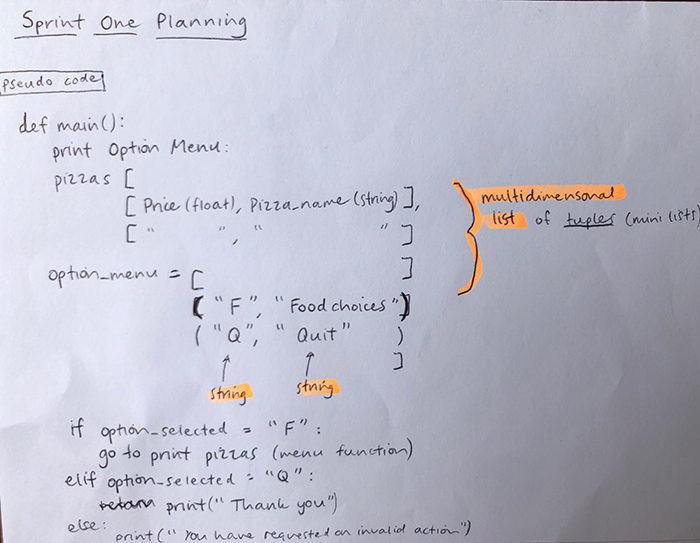 Sprint One Planning
Pseudo code
def main():
print Option Menu:
pizzas [
[ Price (float), Pizza_name (string) ],
[ " ", " " ]
]
multidimensonal
list of tuples (mini lists)
option_menu = [
( "F", "Food choices" )
( "Q", "Quit" )
]
string string
if option_selected = "F":
go to print pizzas (menu function)
elif option_selected = "Q":
return print("Thank you")
else:
print("You have requested an invalid action")